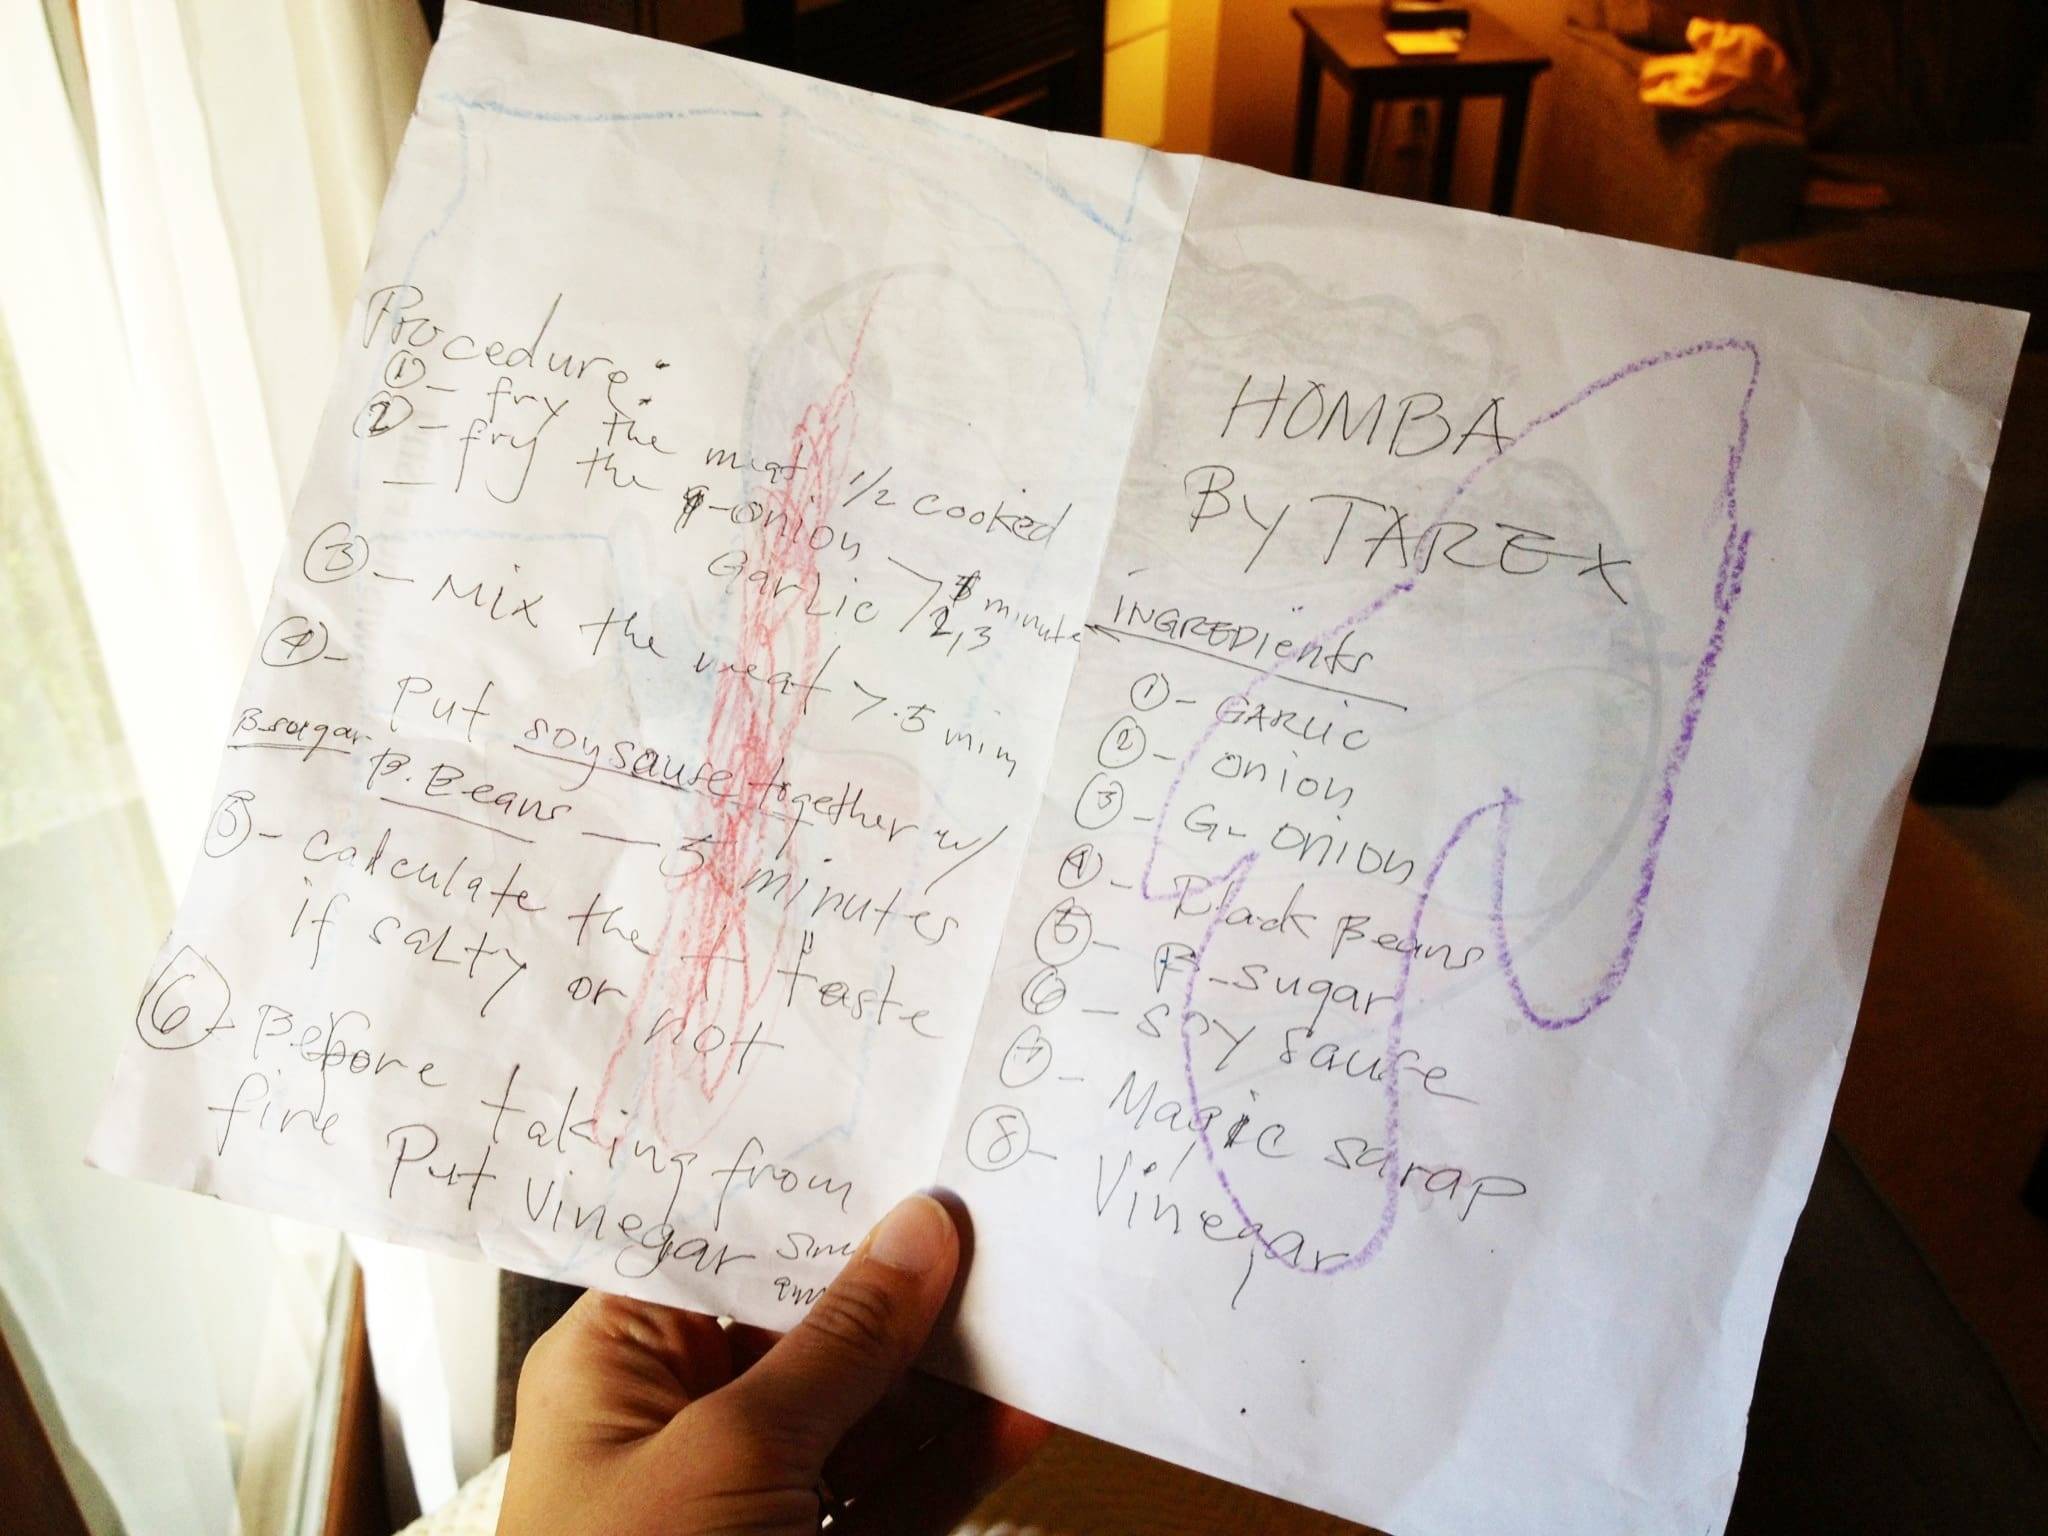 Procedure:
① - fry the meat 1/2 cooked
② - fry the onion
Garlic > 2,3 minute
③ - Mix the meat > 5 min
④ - Put soysause together w/
B-sugar B. Beans — 5 minutes
⑤ - calculate the taste
if salty or not
⑥ - Before taking from
fire Put Vinegar
HOMBA
By TAREX
INGREDients
① - GARLIC
② - onion
③ - G- onion
④ - Black Beans
⑤ - B-sugar
⑥ - Soy Sause
⑦ - Magic sarap
⑧ - Vinegar